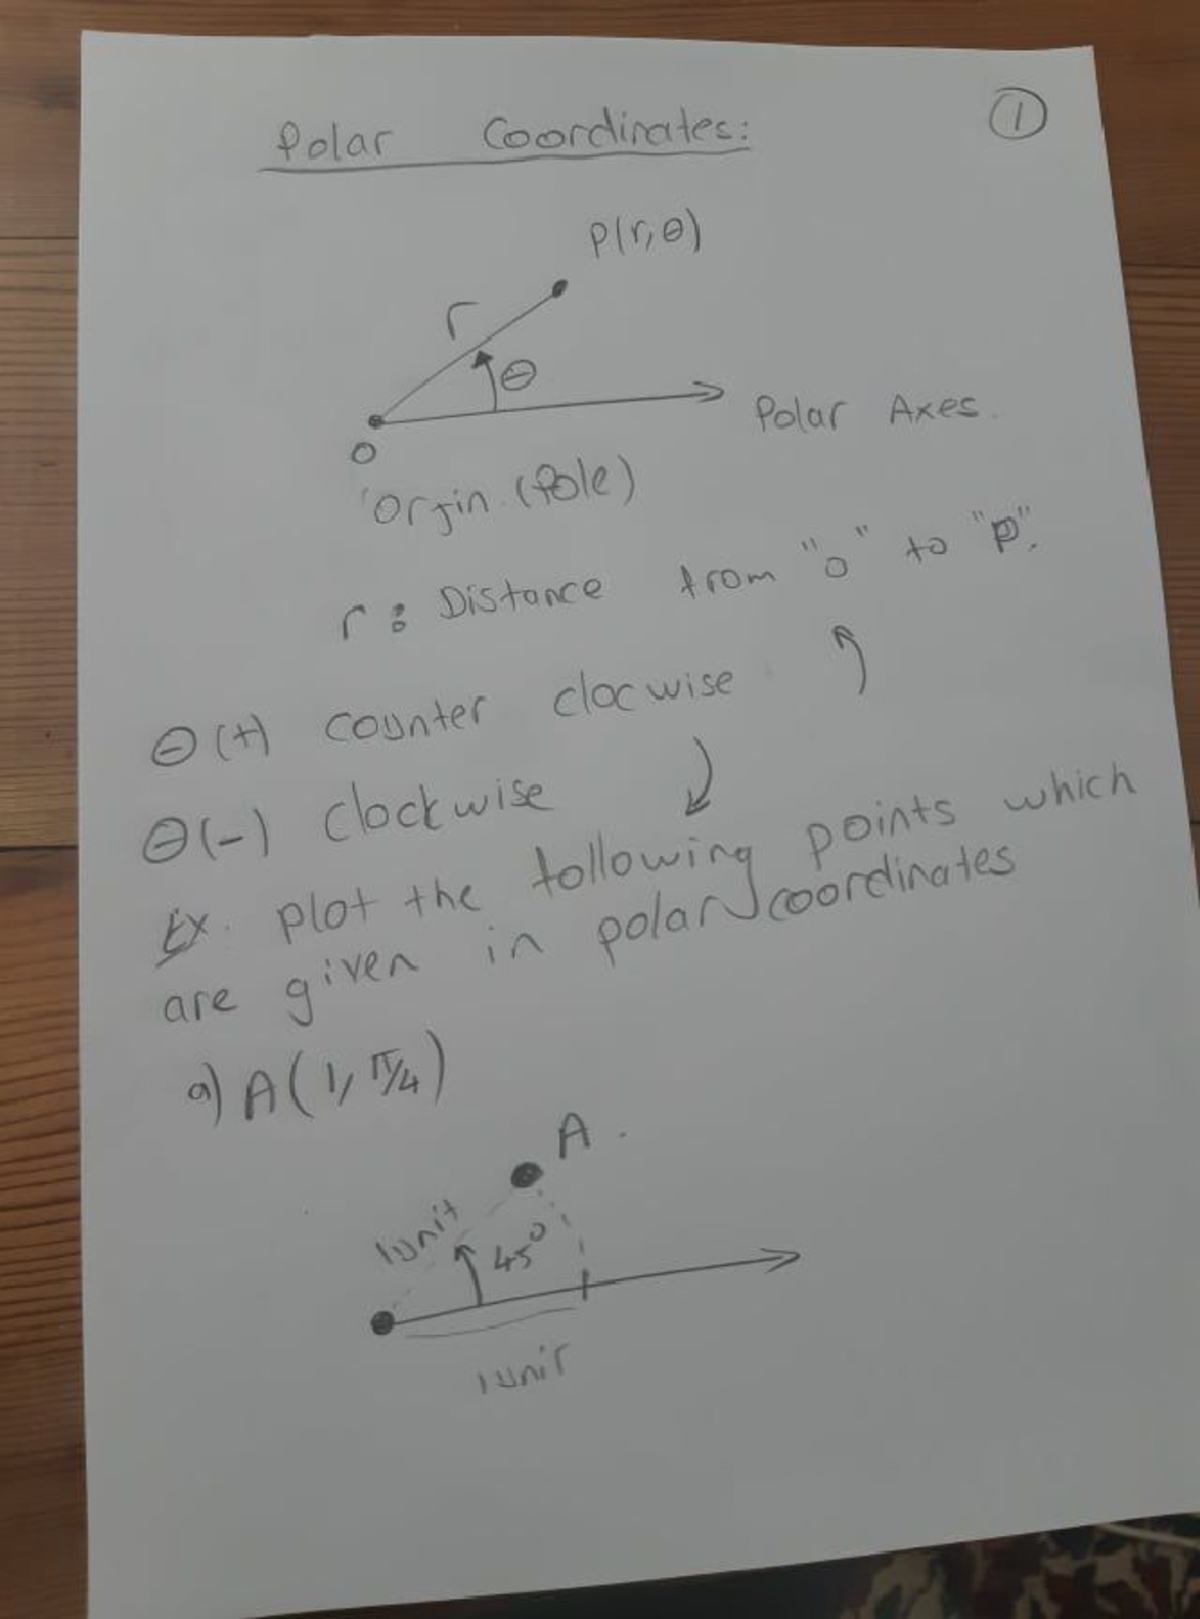 Polar Coordinates:
1
P(r,θ)
r
θ
Polar Axes.
O
Orjin (Pole)
r : Distance from "o" to "P".
θ(+) counter clocwise
θ(-) clockwise
Ex. plot the following points which
are given in polar coordinates
a) A(1, π/4)
A.
1unit
45°
1unit